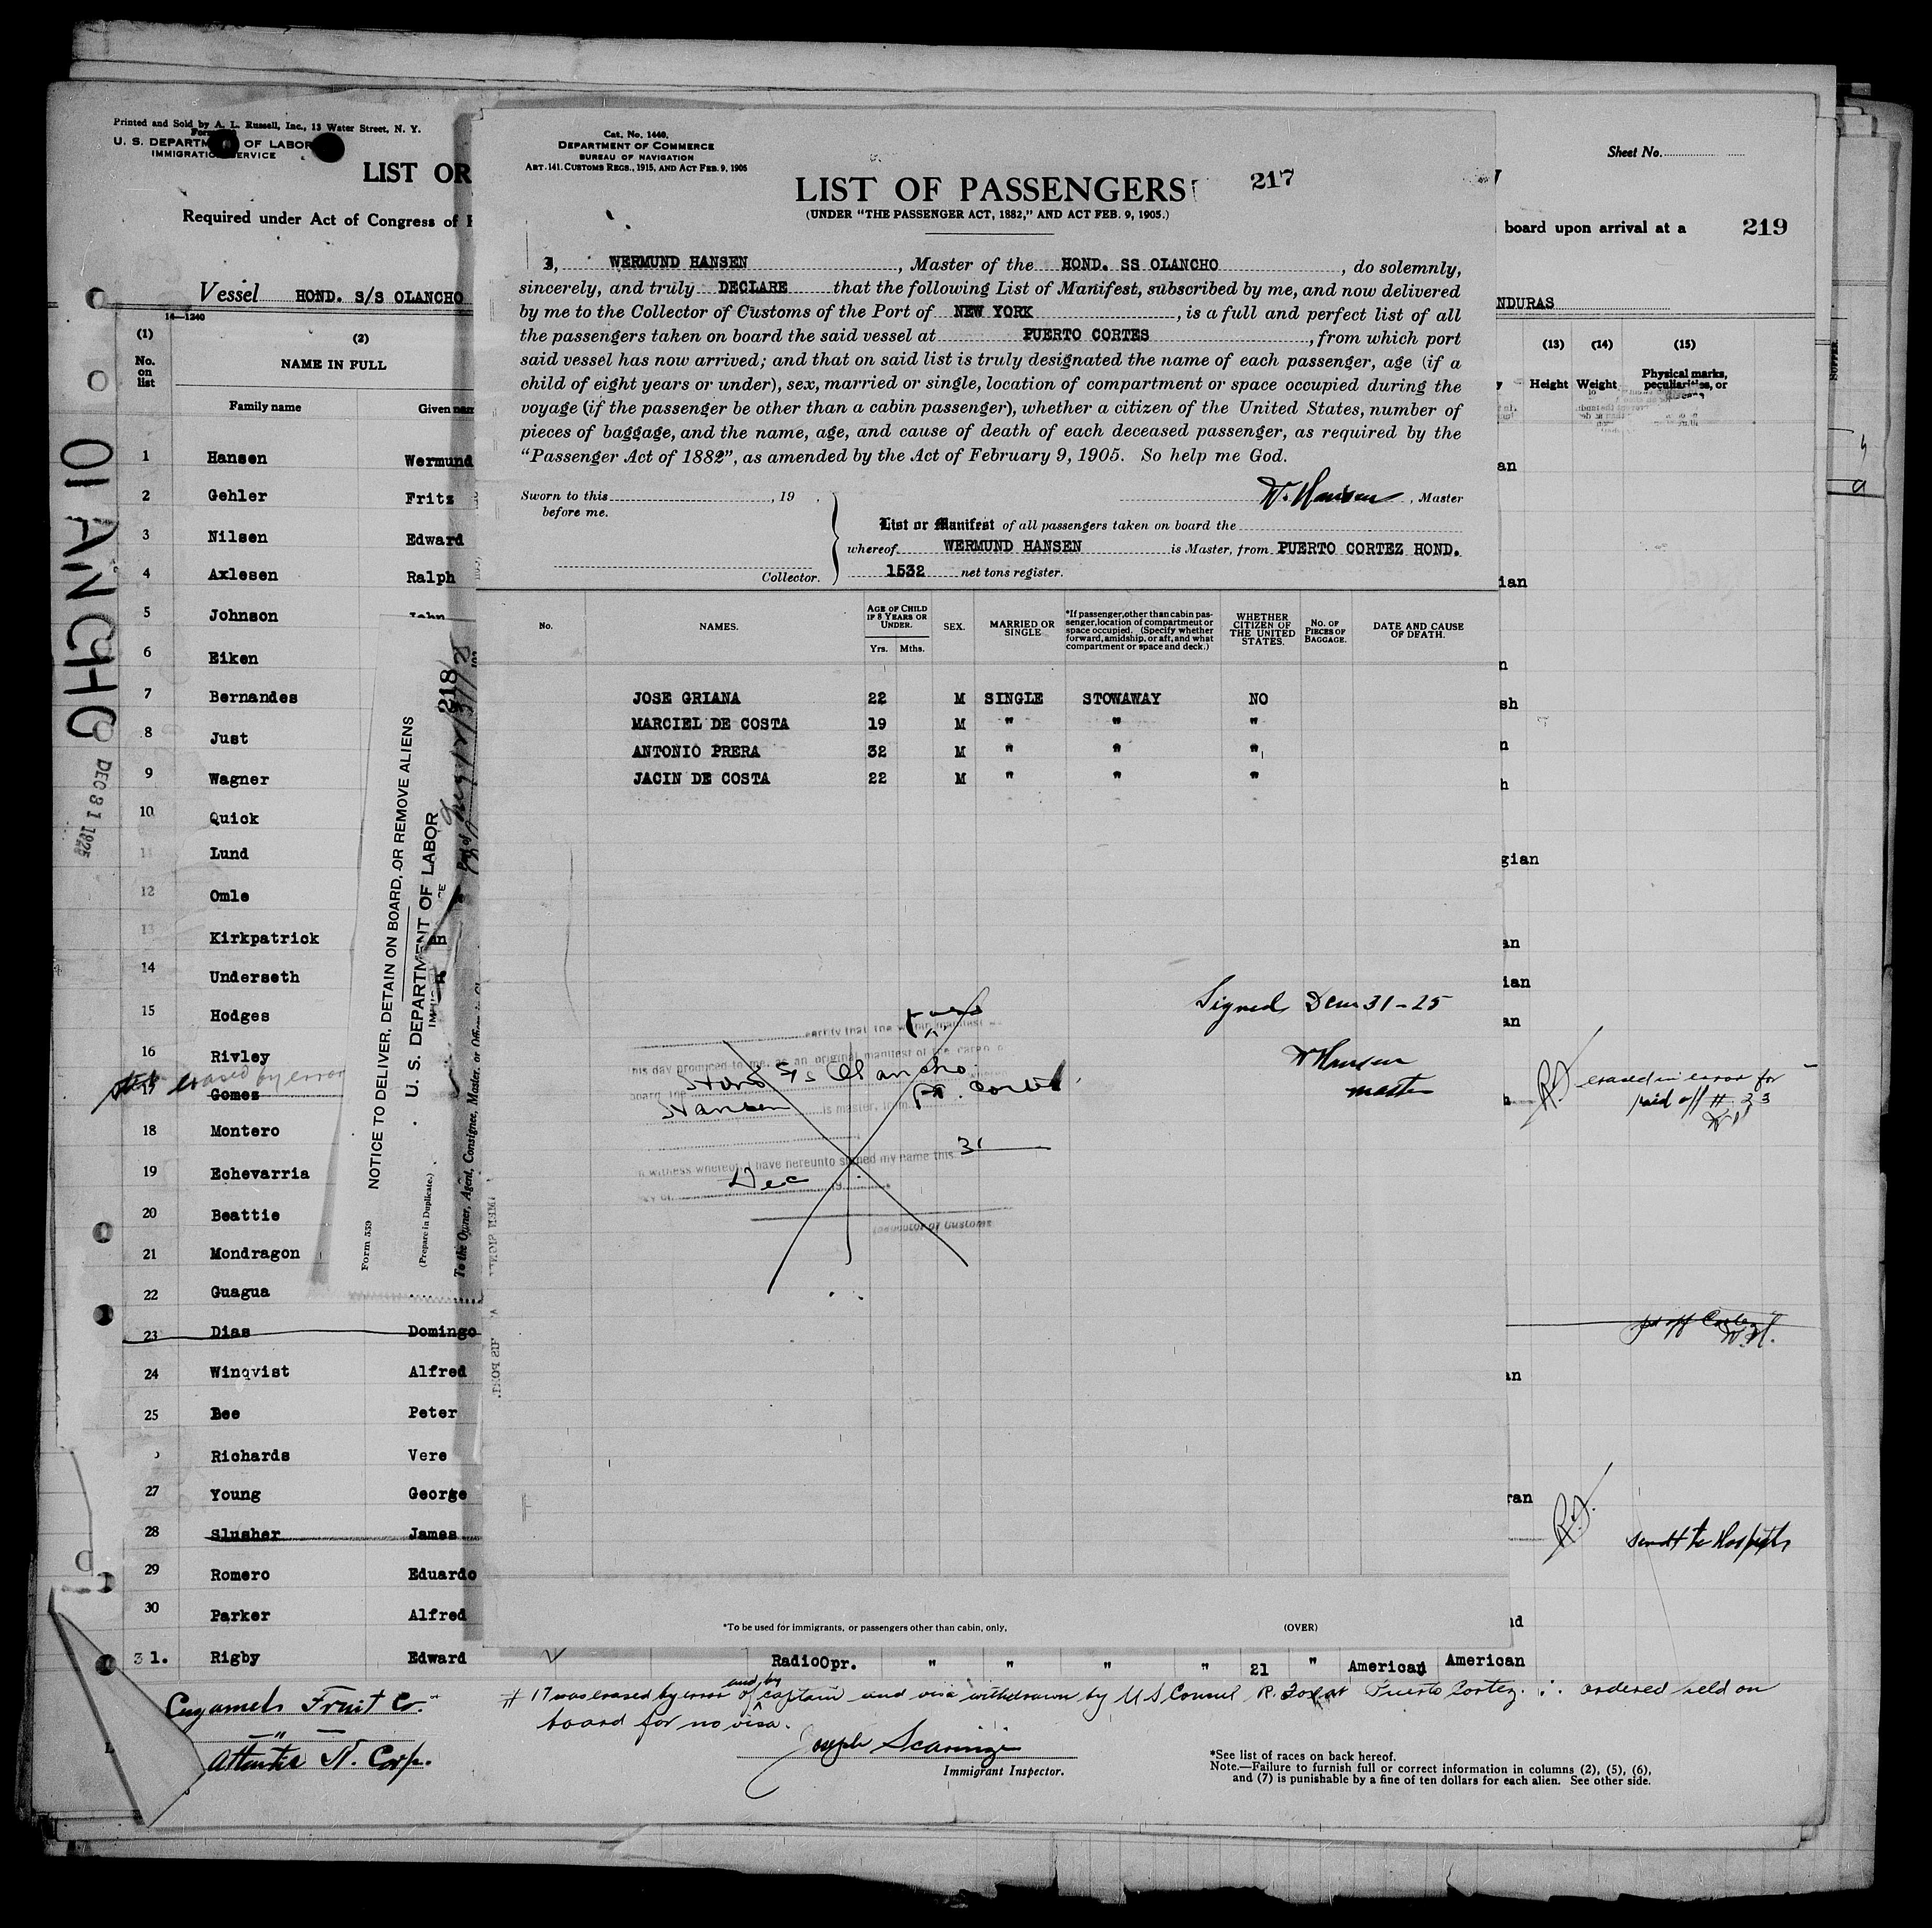 Printed and Sold by A. L. Russell, Inc., 13 Water Street, N. Y.
U. S. DEPARTM OF LABOR
IMMIGRATION SERVICE
LIST OR
Required under Act of Congress of
Vessel HOND. S/S OLANCHO
14-1240
(1) (2)
No. on list
NAME IN FULL
Family name Given name
1 Hansen Wermund
2 Gehler Fritz
3 Nilsen Edward
4 Axlesen Ralph
5 Johnson John
6 Eiken
7 Bernandes
8 Just
9 Wagner
10 Quick
11 Lund
12 Omle
13 Kirkpatrick
14 Underseth
15 Hodges
16 Rivley
erased by error
17 Gomes
18 Montero
19 Echevarria
20 Beattie
21 Mondragon
22 Guagua
23 Dias Domingo
24 Winqvist Alfred
25 Bee Peter
Richards Vere
27 Young George
28 Slusher James
29 Romero Eduardo
30 Parker Alfred
31. Rigby Edward
RadioOpr. " " " " 21 " American American
OLANCHO
DEC 31 1925
Form 559
NOTICE TO DELIVER, DETAIN ON BOARD, OR REMOVE ALIENS
U. S. DEPARTMENT OF LABOR
(Prepare in Duplicate.)
To the Owner, Agent, Consignee, Master, or Officer in
218
Cat. No. 1440.
DEPARTMENT OF COMMERCE
BUREAU OF NAVIGATION
ART. 141. CUSTOMS REGS., 1915, AND ACT FEB. 9, 1905
LIST OF PASSENGERS
217
(UNDER "THE PASSENGER ACT, 1882," AND ACT FEB. 9, 1905.)
I, WERMUND HANSEN, Master of the HOND. SS OLANCHO, do solemnly,
sincerely, and truly DECLARE that the following List of Manifest, subscribed by me, and now delivered
by me to the Collector of Customs of the Port of NEW YORK, is a full and perfect list of all
the passengers taken on board the said vessel at PUERTO CORTES, from which port
said vessel has now arrived; and that on said list is truly designated the name of each passenger, age (if a
child of eight years or under), sex, married or single, location of compartment or space occupied during the
voyage (if the passenger be other than a cabin passenger), whether a citizen of the United States, number of
pieces of baggage, and the name, age, and cause of death of each deceased passenger, as required by the
"Passenger Act of 1882", as amended by the Act of February 9, 1905. So help me God.
Sworn to this , 19 .
before me.
W. Hansen, Master
Collector.
List or Manifest of all passengers taken on board the
whereof WERMUND HANSEN is Master, from PUERTO CORTEZ HOND.
1532 net tons register.
No. NAMES. AGE OF CHILD IF 8 YEARS OR UNDER. Yrs. Mths. SEX. MARRIED OR SINGLE. *If passenger, other than cabin passenger, location of compartment or space occupied. (Specify whether forward, amidship, or aft, and what compartment or space and deck.) WHETHER CITIZEN OF THE UNITED STATES. NO. OF PIECES OF BAGGAGE. DATE AND CAUSE OF DEATH.
JOSE GRIANA 22 M SINGLE STOWAWAY NO
MARCIEL DE COSTA 19 M " " "
ANTONIO PRERA 32 M " " "
JACIN DE COSTA 22 M " " "
Signed Dem 31-25
W Hansen
master
certify that the within manifest
this day produced to me, as an original manifest of the cargo
board the Hond Ss Olancho
Hansen is master, from Pt. Cortez
In witness whereof I have hereunto signed my name this 31
day of Dec 19
Collector of Customs
*To be used for immigrants, or passengers other than cabin, only,
(OVER)
Sheet No.
board upon arrival at a
219
NDURAS
(13) (14) (15)
Height Weight Physical marks, peculiarities, or
erased in error for
paid off # 23
pd off Cortez
sendt to Hospital
# 17 was erased by error of captain and visa withdrawn by U S Consul R. Fox at Puerto Cortez. ∴ ordered held on
and by
board for no visa.
Joseph Scaringi
Immigrant Inspector.
Cuyamels Fruit Co.
— " —
Atlantic N. Corp.
*See list of races on back hereof.
Note.—Failure to furnish full or correct information in columns (2), (5), (6),
and (7) is punishable by a fine of ten dollars for each alien. See other side.